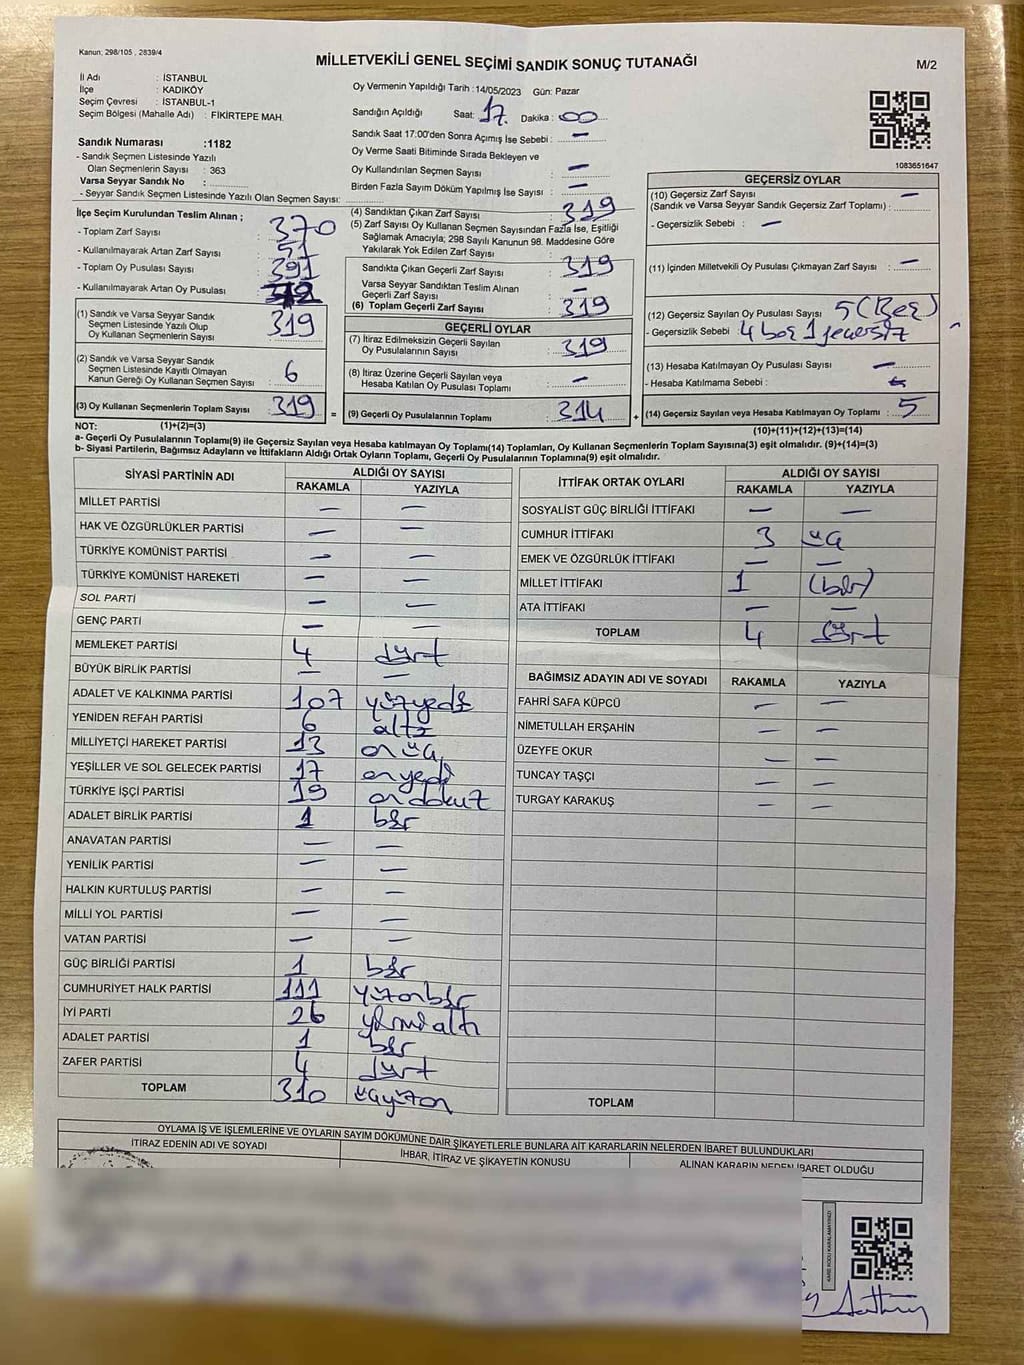 Kanun; 298/105 , 2839/4
MİLLETVEKİLİ GENEL SEÇİMİ SANDIK SONUÇ TUTANAĞI
M/2
İl Adı : İSTANBUL
İlçe : KADIKÖY
Seçim Çevresi : İSTANBUL-1
Seçim Bölgesi (Mahalle Adı) : FİKİRTEPE MAH.
Sandık Numarası :1182
- Sandık Seçmen Listesinde Yazılı
Olan Seçmenlerin Sayısı : 363
Varsa Seyyar Sandık No :
- Seyyar Sandık Seçmen Listesinde Yazılı Olan Seçmen Sayısı:
Oy Vermenin Yapıldığı Tarih : 14/05/2023 Gün: Pazar
Sandığın Açıldığı Saat: 17. Dakika : 00
Sandık Saat 17:00'den Sonra Açımış İse Sebebi : —
Oy Verme Saati Bitiminde Sırada Bekleyen ve
Oy Kullandırılan Seçmen Sayısı : —
Birden Fazla Sayım Döküm Yapılmış İse Sayısı : —
1083651647
İlçe Seçim Kurulundan Teslim Alınan ;
- Toplam Zarf Sayısı : 370
- Kullanılmayarak Artan Zarf Sayısı : 51
- Toplam Oy Pusulası Sayısı : 391
- Kullanılmayarak Artan Oy Pusulası :
(1) Sandık ve Varsa Seyyar Sandık
Seçmen Listesinde Yazılı Olup
Oy Kullanan Seçmenlerin Sayısı : 319
(2) Sandık ve Varsa Seyyar Sandık
Seçmen Listesinde Kayıtlı Olmayan
Kanun Gereği Oy Kullanan Seçmen Sayısı : 6
(3) Oy Kullanan Seçmenlerin Toplam Sayısı : 319 =
(4) Sandıktan Çıkan Zarf Sayısı : 319
(5) Zarf Sayısı Oy Kullanan Seçmen Sayısından Fazla İse, Eşitliği
Sağlamak Amacıyla; 298 Sayılı Kanunun 98. Maddesine Göre
Yakılarak Yok Edilen Zarf Sayısı :
Sandıkta Çıkan Geçerli Zarf Sayısı : 319
Varsa Seyyar Sandıktan Teslim Alınan
Geçerli Zarf Sayısı : —
(6) Toplam Geçerli Zarf Sayısı : 319
GEÇERLİ OYLAR
(7) İtiraz Edilmeksizin Geçerli Sayılan
Oy Pusulalarının Sayısı : 319
(8) İtiraz Üzerine Geçerli Sayılan veya
Hesaba Katılan Oy Pusulası Toplamı : —
(9) Geçerli Oy Pusulalarının Toplamı : 314 +
GEÇERSİZ OYLAR
(10) Geçersiz Zarf Sayısı —
(Sandık ve Varsa Seyyar Sandık Geçersiz Zarf Toplamı) :
- Geçersizlik Sebebi : —
(11) İçinden Milletvekili Oy Pusulası Çıkmayan Zarf Sayısı : —
(12) Geçersiz Sayılan Oy Pusulası Sayısı 5 (Beş)
- Geçersizlik Sebebi : 4 boş 1 geçersiz
(13) Hesaba Katılmayan Oy Pusulası Sayısı : —
- Hesaba Katılmama Sebebi :
(14) Geçersiz Sayılan veya Hesaba Katılmayan Oy Toplamı : 5
NOT: (1)+(2)=(3)
(10)+(11)+(12)+(13)=(14)
a- Geçerli Oy Pusulalarının Toplamı(9) ile Geçersiz Sayılan veya Hesaba katılmayan Oy Toplamı(14) Toplamları, Oy Kullanan Seçmenlerin Toplam Sayısına(3) eşit olmalıdır. (9)+(14)=(3)
b- Siyasi Partilerin, Bağımsız Adayların ve İttifakların Aldığı Ortak Oyların Toplamı, Geçerli Oy Pusulalarının Toplamına(9) eşit olmalıdır.
SİYASİ PARTİNİN ADI ALDIĞI OY SAYISI
RAKAMLA YAZIYLA
MİLLET PARTİSİ — —
HAK VE ÖZGÜRLÜKLER PARTİSİ — —
TÜRKİYE KOMÜNİST PARTİSİ — —
TÜRKİYE KOMÜNİST HAREKETİ — —
SOL PARTİ — —
GENÇ PARTİ — —
MEMLEKET PARTİSİ 4 dört
BÜYÜK BİRLİK PARTİSİ — —
ADALET VE KALKINMA PARTİSİ 107 yüzyedi
YENİDEN REFAH PARTİSİ 6 altı
MİLLİYETÇİ HAREKET PARTİSİ 13 onüç
YEŞİLLER VE SOL GELECEK PARTİSİ 17 onyedi
TÜRKİYE İŞÇİ PARTİSİ 19 ondokuz
ADALET BİRLİK PARTİSİ 1 bir
ANAVATAN PARTİSİ — —
YENİLİK PARTİSİ — —
HALKIN KURTULUŞ PARTİSİ — —
MİLLİ YOL PARTİSİ — —
VATAN PARTİSİ — —
GÜÇ BİRLİĞİ PARTİSİ 1 bir
CUMHURİYET HALK PARTİSİ 111 yüzonbir
İYİ PARTİ 26 yirmialtı
ADALET PARTİSİ 1 bir
ZAFER PARTİSİ 4 dört
TOPLAM 310 üçyüzon
İTTİFAK ORTAK OYLARI ALDIĞI OY SAYISI
RAKAMLA YAZIYLA
SOSYALİST GÜÇ BİRLİĞİ İTTİFAKI — —
CUMHUR İTTİFAKI 3 üç
EMEK VE ÖZGÜRLÜK İTTİFAKI — —
MİLLET İTTİFAKI 1 (bir)
ATA İTTİFAKI — —
TOPLAM 4 dört
BAĞIMSIZ ADAYIN ADI VE SOYADI RAKAMLA YAZIYLA
FAHRİ SAFA KÜPCÜ — —
NİMETULLAH ERŞAHİN — —
ÜZEYFE OKUR — —
TUNCAY TAŞÇI — —
TURGAY KARAKUŞ — —
TOPLAM
OYLAMA İŞ VE İŞLEMLERİNE VE OYLARIN SAYIM DÖKÜMÜNE DAİR ŞİKAYETLERLE BUNLARA AİT KARARLARIN NELERDEN İBARET BULUNDUKLARI
İTİRAZ EDENİN ADI VE SOYADI
İHBAR, İTİRAZ VE ŞİKAYETİN KONUSU
ALINAN KARARIN NEDEN İBARET OLDUĞU
KARE KODU KARALAMAYINIZ!